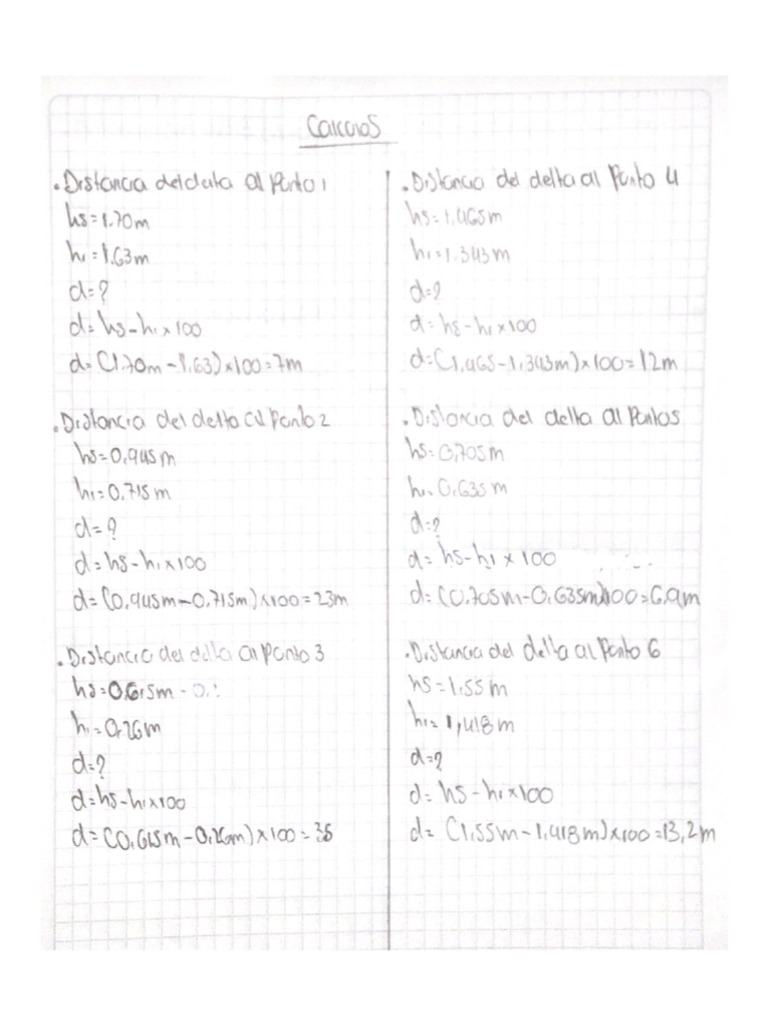 Calculos
• Distancia del delta al Punto 1
hs = 1.70m
hi = 1.63m
d = ?
d = hs - hi x 100
d = (1.70m - 1.63) x 100 = 7m
• Distancia del delta al Punto 2
hs = 0.945m
hi = 0.715m
d = ?
d = hs - hi x 100
d = (0.945m - 0.715m) x 100 = 23m
• Distancia del delta al punto 3
hs = 0.615m - 0.
hi = 0.26m
d = ?
d = hs - hi x 100
d = (0.615m - 0.26m) x 100 = 36
• Distancia del delta al Punto 4
hs = 1.465m
hi = 1.343m
d = ?
d = hs - hi x 100
d = (1.465 - 1.343m) x 100 = 12m
• Distancia del delta al Punto 5
hs = 0.705m
hi = 0.635m
d = ?
d = hs - hi x 100
d = (0.705m - 0.635m) x 100 = 6.9m
• Distancia del delta al Punto 6
hs = 1.55m
hi = 1,418m
d = ?
d = hs - hi x 100
d = (1.55m - 1.418m) x 100 = 13,2m